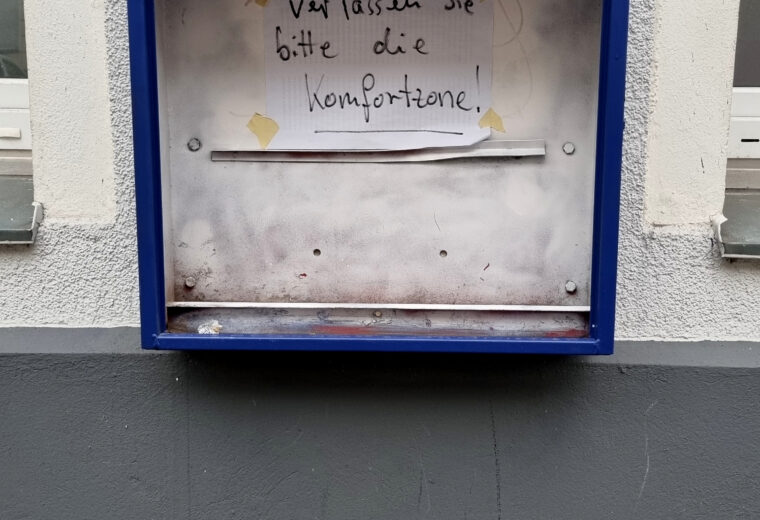 Verlassen Sie
bitte die
Komfortzone!